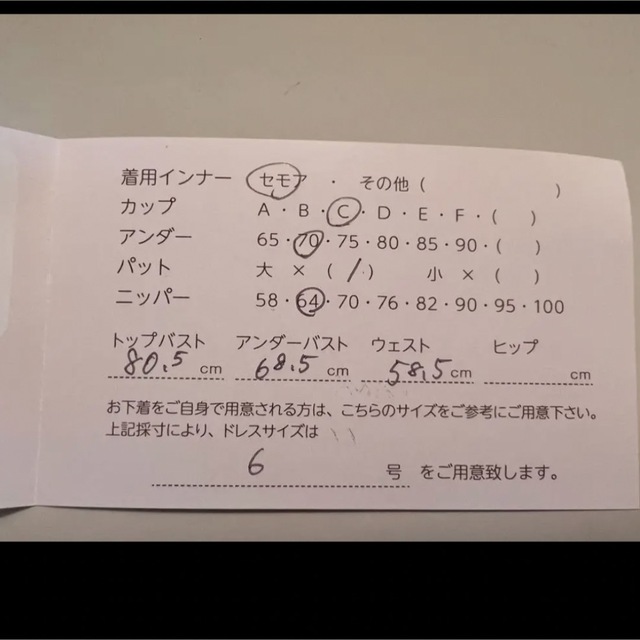 着用インナー セモア ・ その他 ( )
カップ A・B・C・D・E・F・( )
アンダー 65・70・75・80・85・90・( )
パット 大 × ( / ) 小 × ( )
ニッパー 58・64・70・76・82・90・95・100
トップバスト アンダーバスト ウェスト ヒップ
80.5 cm 68.5 cm 58.5 cm cm
お下着をご自身で用意される方は、こちらのサイズをご参考にご用意下さい。
上記採寸により、ドレスサイズは
6 号 をご用意致します。